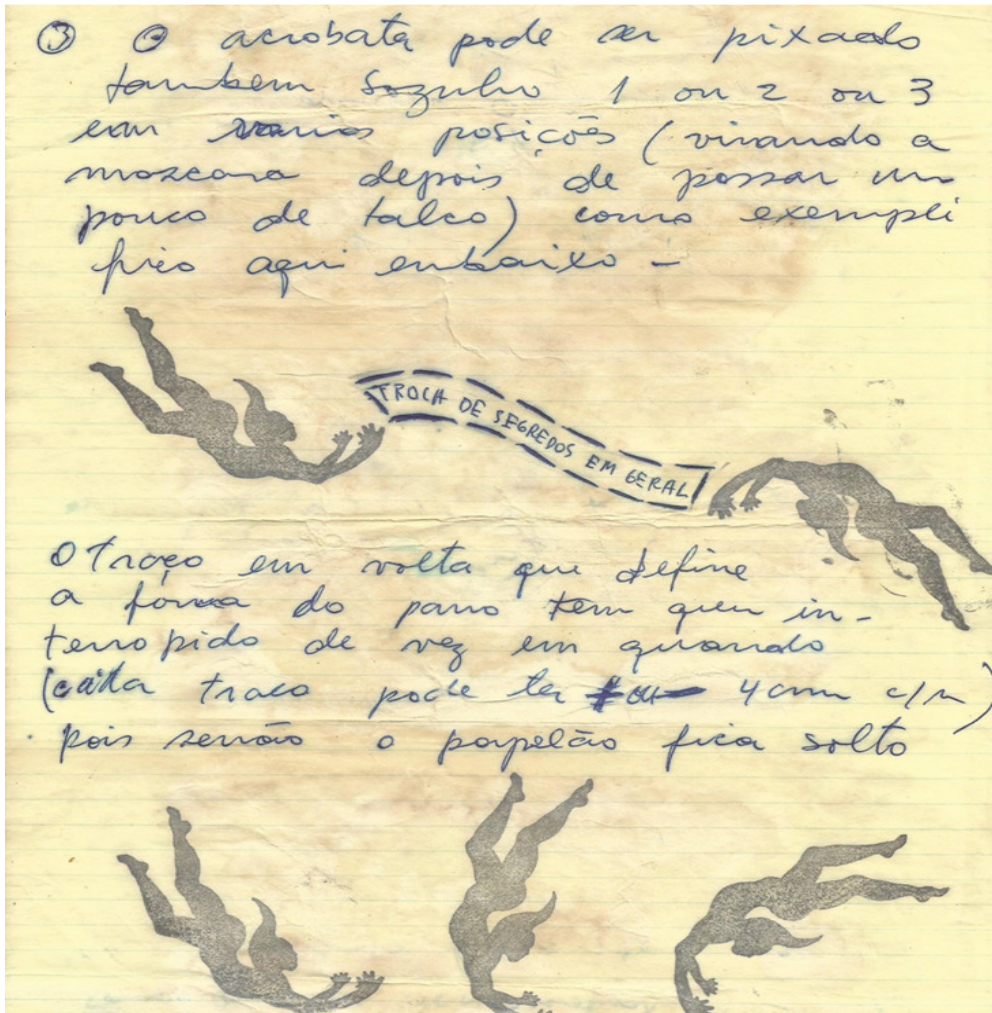 ③ O acrobata pode ser pixado
tambem sozinho 1 ou 2 ou 3
em varias posições (virando a
mascara depois de passar um
pouco de talco) como exempli
fico aqui embaixo -
TROCA DE SEGREDOS EM GERAL
O traço em volta que define
a forma do pano tem que in-
terropido de vez em quando
(cada traco pode ter 4 cm c/m)
pois senão o papelão fica solto